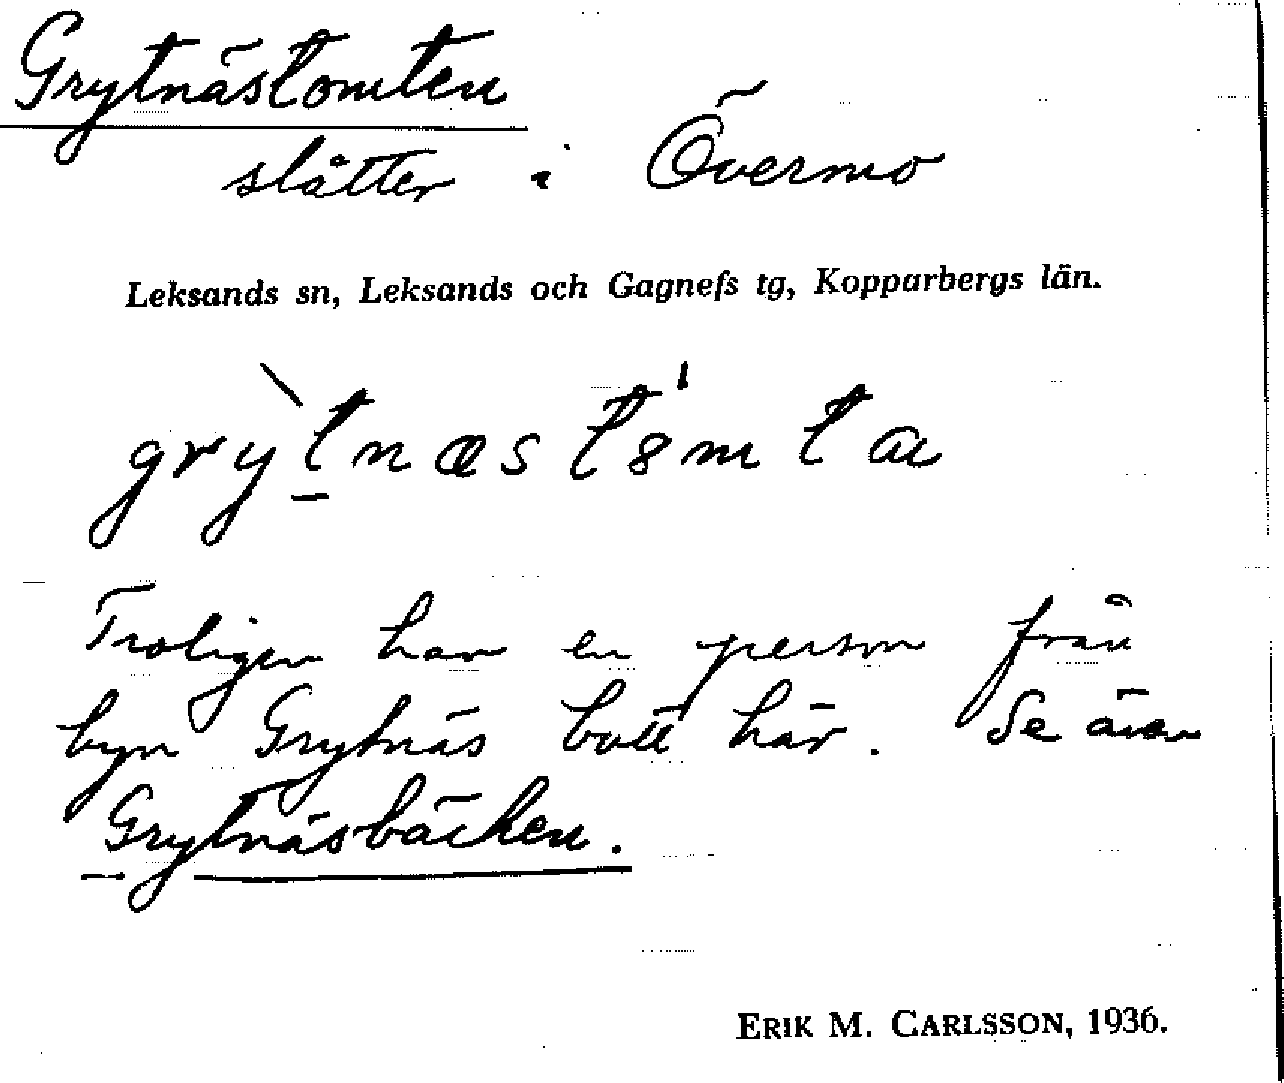 Grytnästomten
slåtter i Övermo
Leksands sn, Leksands och Gagnefs tg, Kopparbergs län.
grỳt̠næst8̍mta
Troligen har en person från
byn Grytnäs bott här. Se även
Grytnäsbäcken.
ERIK M. CARLSSON, 1936.